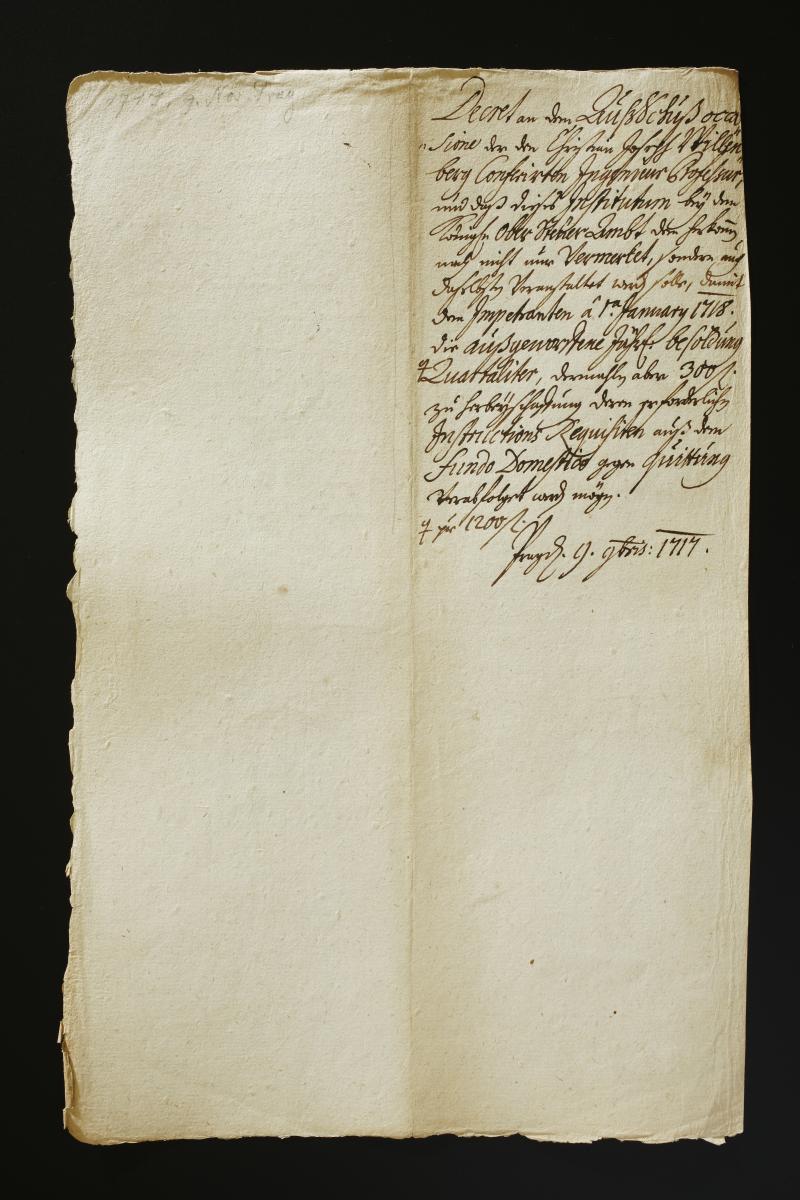 1717. 9. Nov. Prag
Decret an den Außschuß occa
sione der dem Christian Joseph Willen
berg Conferirten Ingenieur Professur,
und daß dieses Institutum bey dem
Königl. Ober Steuer Ambt dem herkom̄en
nach nicht nur Vermerket, sondern auch
daselbsten Veranstaltet werd solle, damit
dem Impetranten â 1.a January 1718.
die außgeworffene Jährl. besoldung
Quartaliter, dermahln aber 300 f.
zu herbeyschaffung deren erforderlichn
Instructions Requisiten auß dem
fundo Domestico gegen Quittung
Verabfolget werd mögn.
per 1200 f.
Prag d. 9. 9bris: 1717.